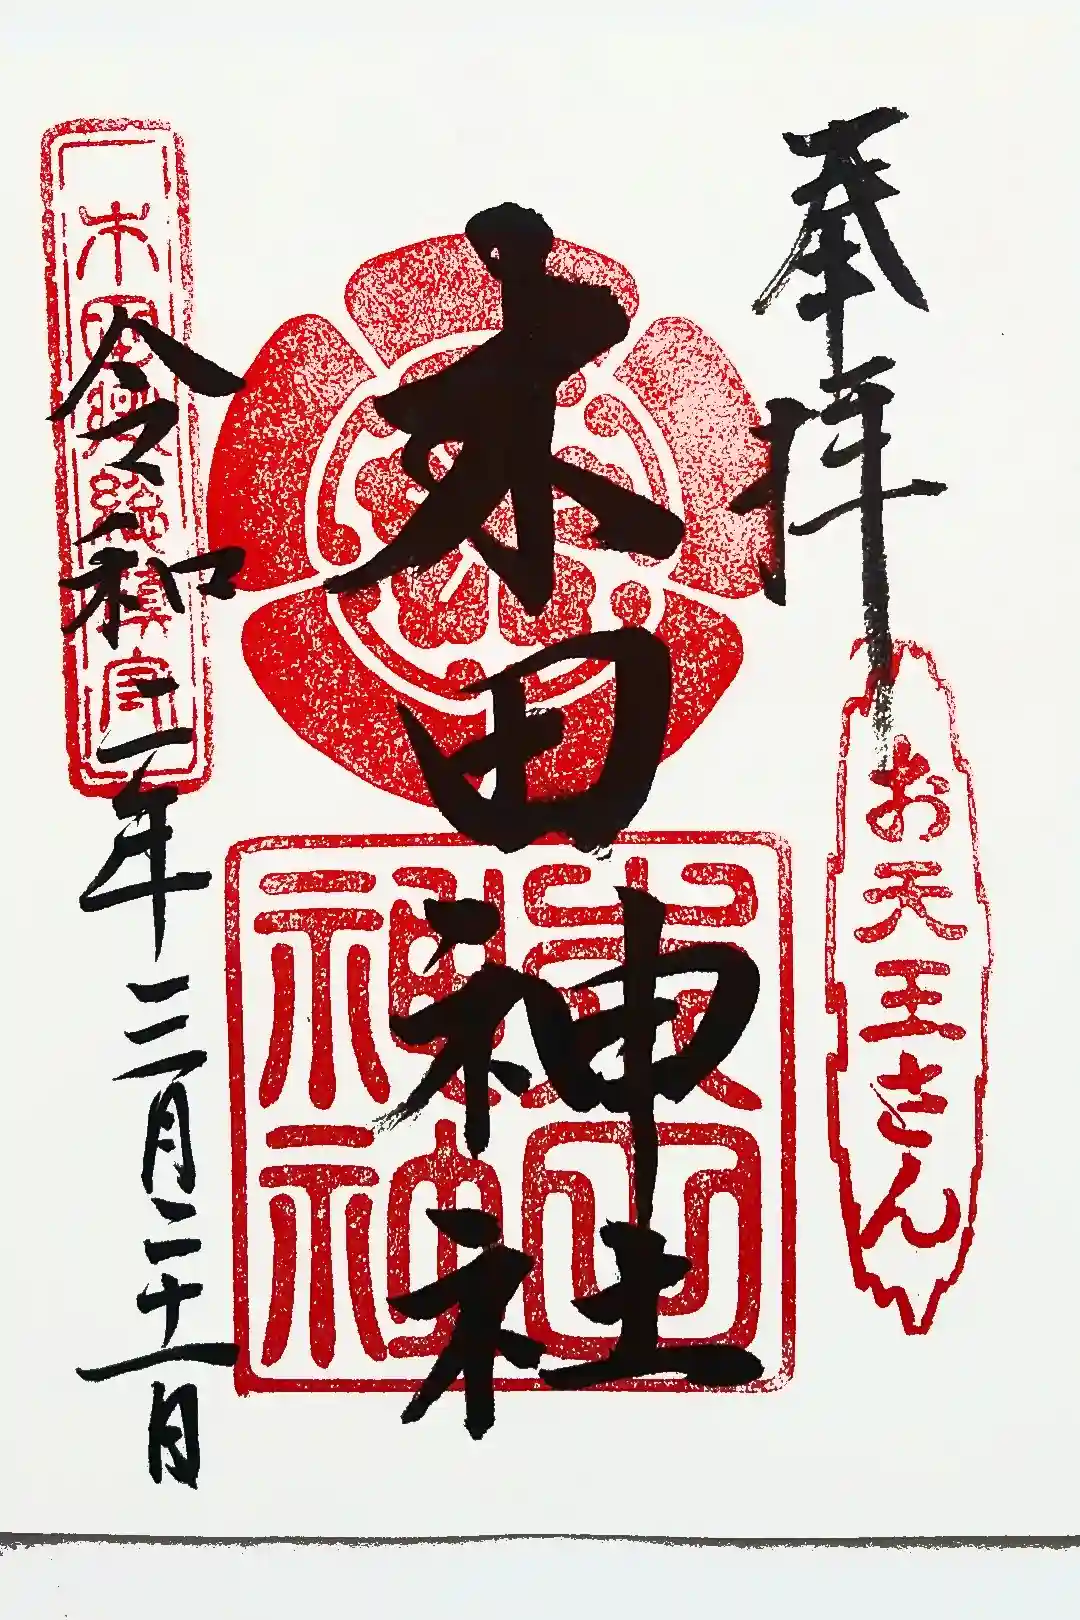 奉拝
お天王さん
木田神社
木田郷総鎮守
令和二年三月二十一日